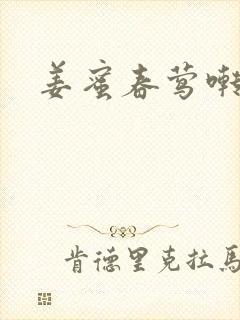 姜蜜春莺啭
肯德里克拉马